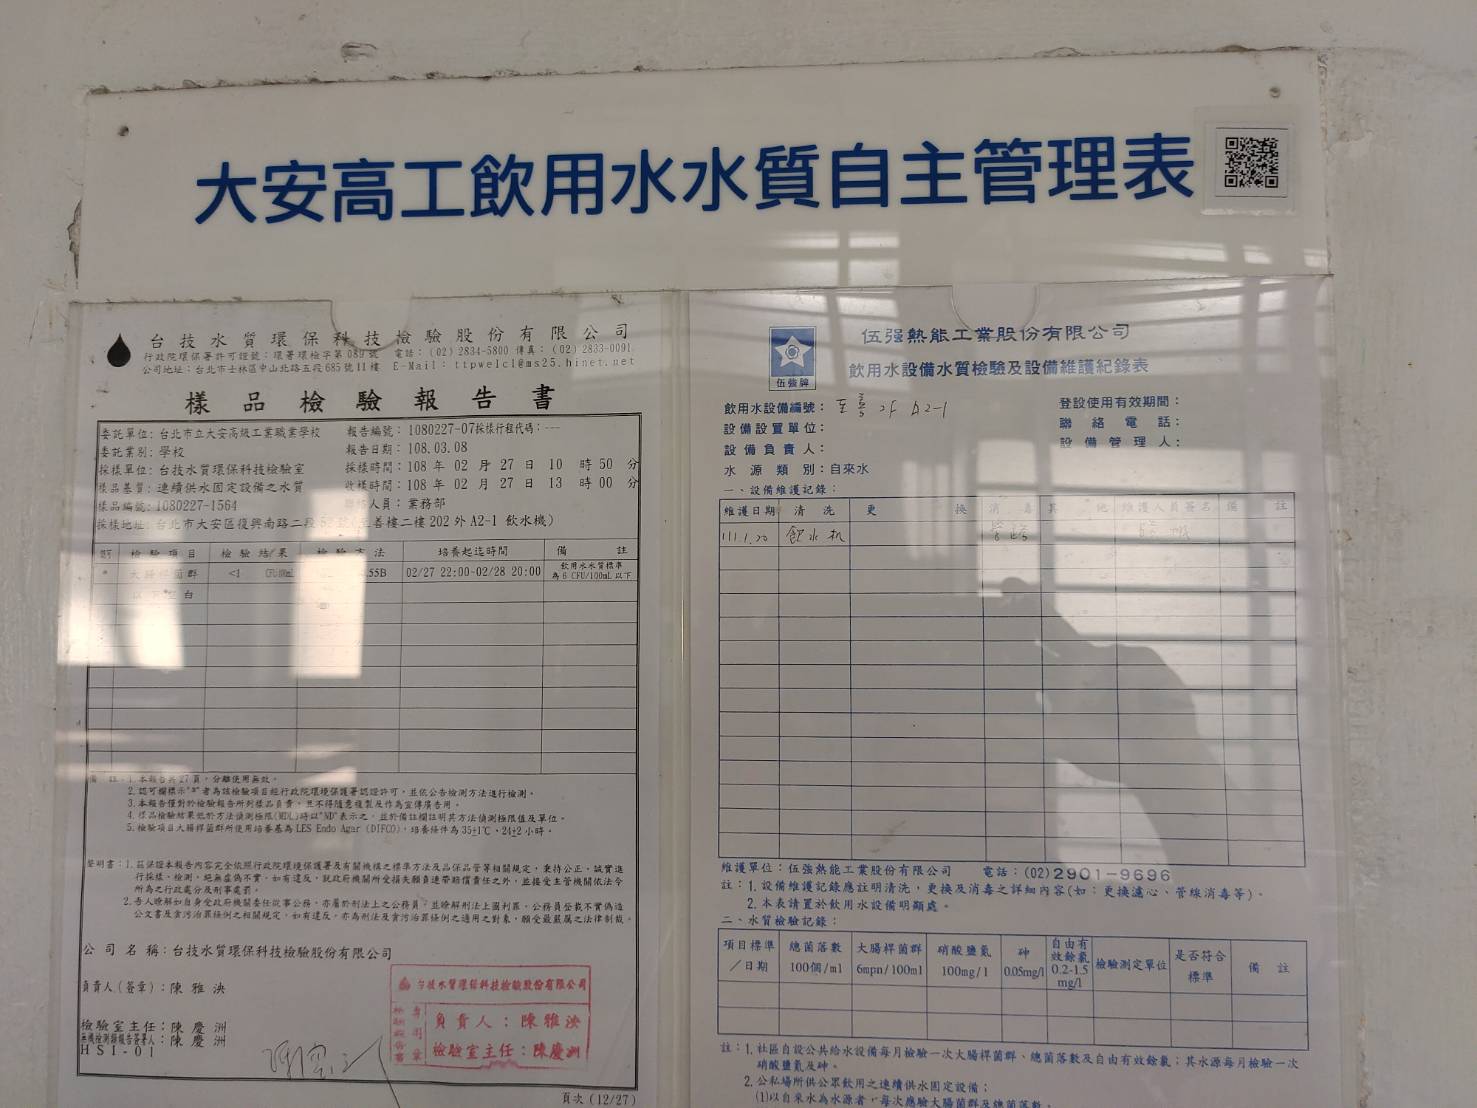 大安高工飲用水水質自主管理表
台技水質環保科技檢驗股份有限公司
行政院環保署許可證號：環署環檢字第089號 電話：(02) 2834-5800 傳真：(02) 2833-0091
公司地址：台北市士林區中山北路五段685號11樓 E-Mail：ttpwelcl@ms25.hinet.net
樣品檢驗報告書
委託單位：台北市立大安高級工業職業學校 報告編號：1080227-07採樣行程代碼：---
委託業別：學校 報告日期：108.03.08
採樣單位：台技水質環保科技檢驗室 採樣時間：108 年 02 月 27 日 10 時 50 分
樣品基質：連續供水固定設備之水質 收樣時間：108 年 02 月 27 日 13 時 00 分
樣品編號：1080227-1564 聯絡人員：業務部
採樣地址：台北市大安區復興南路二段 號(至善樓二樓202外A2-1 飲水機)
檢驗項目 檢驗結果 檢驗方法 培養起迄時間 備註
* 大腸桿菌群 <1 CFU/100mL 55B 02/27 22:00-02/28 20:00 飲用水水質標準
為 6 CFU/100mL 以下
以下空白
備 註：1.本報告共27頁，分離使用無效。
2.認可欄標示"*"者為該檢驗項目經行政院環境保護署認證許可，並依公告檢測方法進行檢測。
3.本報告僅對於檢驗報告所列樣品負責，且不得隨意複製及作為宣傳廣告用。
4.樣品檢驗結果低於方法偵測極限(MDL)時以"ND"表示之，並於備註欄註明其方法偵測極限值及單位。
5.檢驗項目大腸桿菌群所使用培養基為LES Endo Agar (DIFCO)，培養條件為35±1℃、24±2小時。
聲明書：1.茲保證本報告內容完全依照行政院環境保護署及有關機構之標準方法及品保品管等相關規定，秉持公正、誠實進
行採樣、檢測。絕無虛偽不實，如有違反，就政府機關所受損失願負連帶賠償責任之外，並接受主管機關依法令
所為之行政處分及刑事處罰。
2.吾人瞭解如自身受政府機關委任從事公務，亦屬於刑法上之公務員，並瞭解刑法上圖利罪、公務員登載不實偽造
公文書及貪污治罪條例之相關規定，如有違反，亦為刑法及貪污治罪條例之適用之對象，願受最嚴厲之法律制裁。
公司名稱：台技水質環保科技檢驗股份有限公司
負責人(簽章)：陳雅泱
檢驗室主任：陳慶洲
無機檢測類報告簽署人：陳慶洲
HSI-01
台技水質環保科技檢驗股份有限公司
檢驗報告書專用章
負責人：陳雅泱
檢驗室主任：陳慶洲
頁次 (12/27)
伍強牌
伍强熱能工業股份有限公司
飲用水設備水質檢驗及設備維護紀錄表
飲用水設備編號：至善 2F A2-1 登設使用有效期間：
設備設置單位： 聯絡電話：
設備負責人： 設備管理人：
水源類別：自來水
一、設備維護記錄：
維護日期 清洗 更換 消毒 其他 維護人員簽名 備註
111.1.20 飲水机
維護單位：伍強熱能工業股份有限公司 電話：(02)2901-9696
註：1.設備維護記錄應註明清洗，更換及消毒之詳細內容(如：更換濾心、管線消毒等)。
2.本表請置於飲用水設備明顯處。
二、水質檢驗記錄：
項目標準／日期 總菌落數 100個/ml 大腸桿菌群 6mpn/100ml 硝酸鹽氮 100mg/l 砷 0.05mg/l 自由有效餘氯 0.2-1.5 mg/l 檢驗測定單位 是否符合標準 備註
註：1.社區自設公共給水設備每月檢驗一次大腸桿菌群、總菌落數及自由有效餘氯；其水源每月檢驗一次
硝酸鹽氮及砷。
2.公私場所供公眾飲用之連續供水固定設備：
(1)以自來水為水源者，每次應驗大腸菌群及總菌落數。